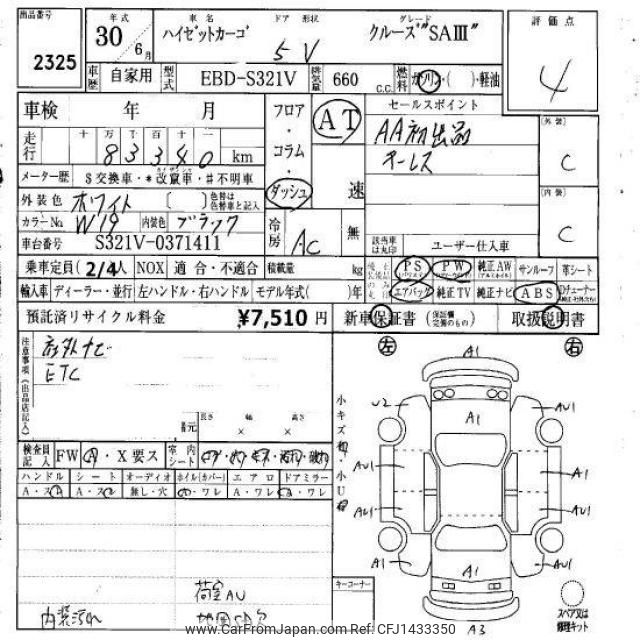 出品番号 年式 車名 ドア 形状 グレード 評価点
2325 30 / 6月 ハイゼットカーゴ 5 V クルーズ"SAⅢ" 4
車歴 自家用 型式 EBD-S321V 排気量 660 c.c. 燃料 ガソリン・( )・軽油
車検 年 月 フロア・コラム・ダッシュ AT 速 セールスポイント
AA初出品 [外装] C
オーレス
走行 十 万 千 百 十
83340 km
メーター歴 $交換車・*改竄車・#不明車 [内装] C
外装色 ホワイト [ ] 色替は色替車と記入
カラーNo. W19 内装色 ブラック 冷房 AC 無
車台番号 S321V-0371411 該当車は丸印 ユーザー仕入車
乗車定員 (2/4)人 NOX 適合・不適合 積載量 kg PS PW 純正AW サンルーフ 革シート
輸入車 ディーラー・並行 左ハンドル・右ハンドル モデル年式( )年 エアバッグ 純正TV 純正ナビ ABS
預託済リサイクル料金 ¥7,510 円 新車保証書 (保証欄・定備のもの) 取扱説明書
注意事項(出品店記入) 社外ナビ
ETC
左 右
長さ 幅 高さ
× ×
検査員記入 FW A・X要ス 室内シート
ハンドル シート オーディオ ホイル(カバー) エアロ ドアミラー
A・ス A・ス 無し・穴 A・ワレ A・ワレ A・ワレ
小キズ 小U
A1
U2 A1 AU1
AU1 A1 A1
AU1 AU1
A1 A1 A1
A3
荷室AU
内装汚れ
キーコーナー
スペア又は修理キット
www.CarFromJapan.com - ID:CFJ1433350